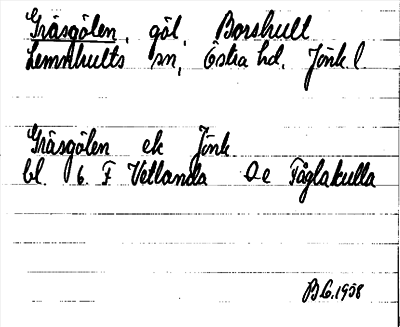 Gräsgölen, göl, Borshult
Lemnhults sn, Östra hd. Jönk. l.
Gräsgölen ek Jönk
bl. 6 F Vetlanda 0 e Fåglakulla
B.G. 1958